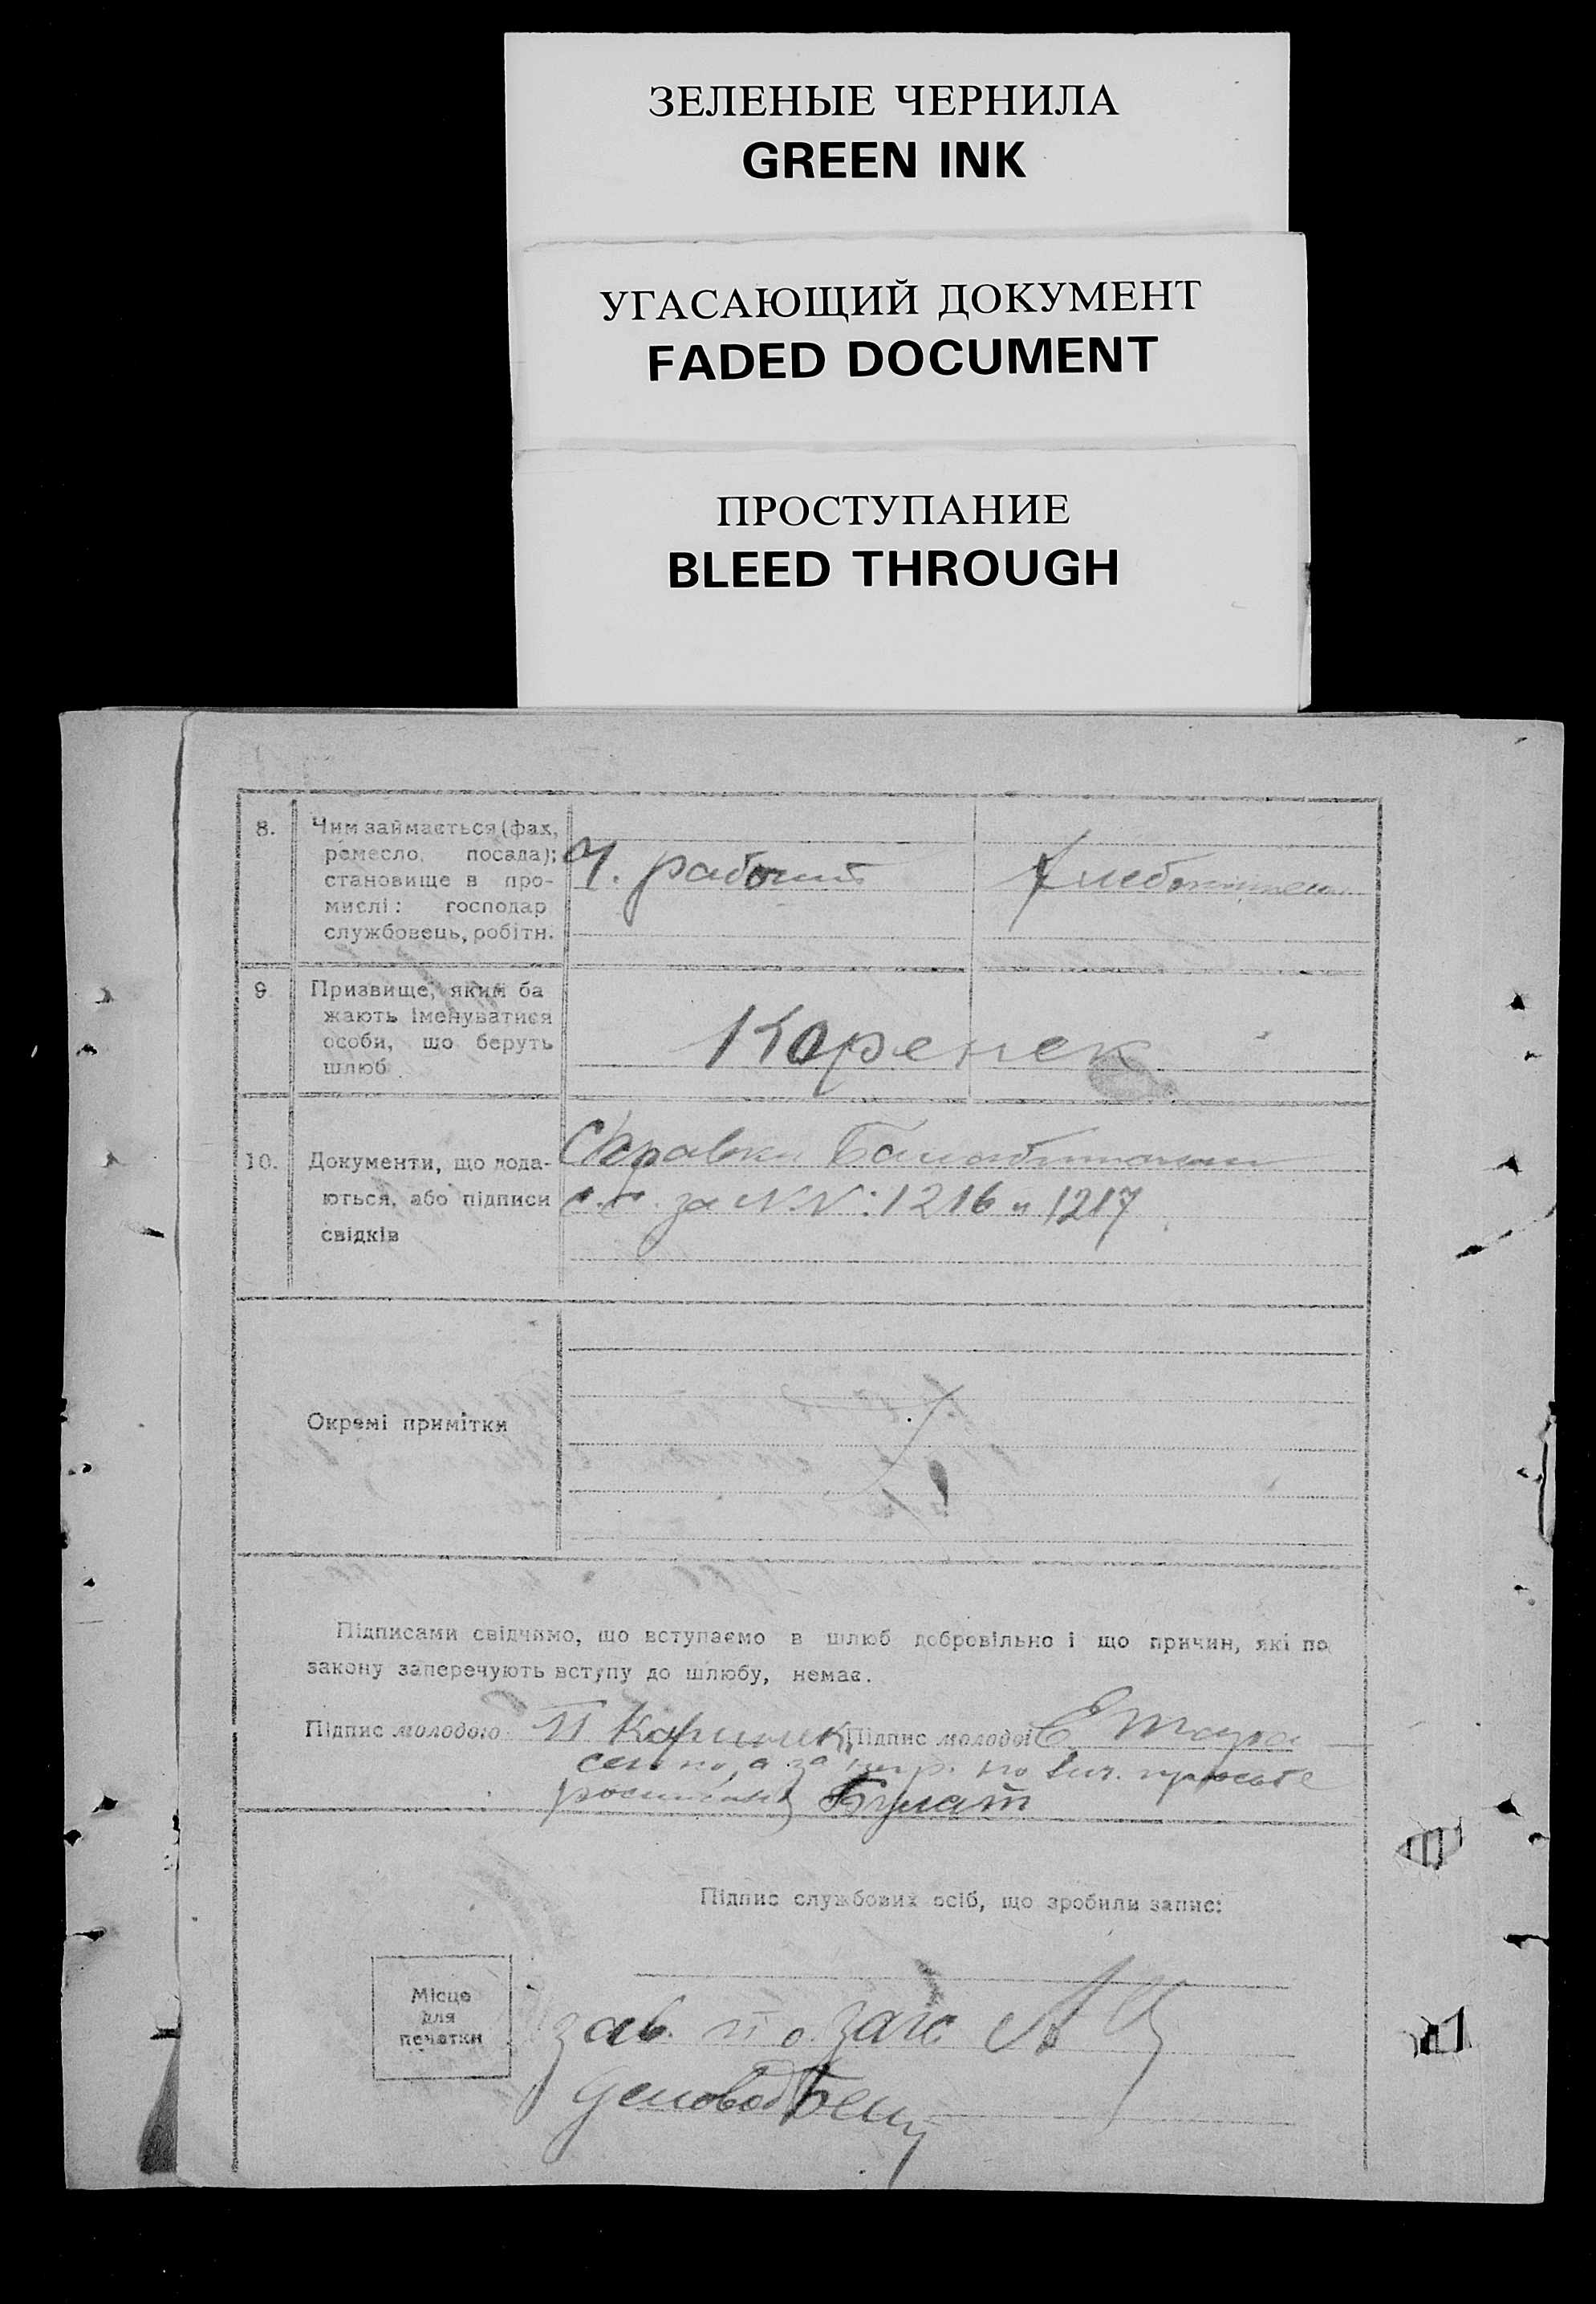 ЗЕЛЕНЫЕ ЧЕРНИЛА
GREEN INK
УГАСАЮЩИЙ ДОКУМЕНТ
FADED DOCUMENT
ПРОСТУПАНИЕ
BLEED THROUGH
8. Чим займається (фах,
ремесло, посада);
становище в про-
мислі: господар
службовець, робітн.
Ч. рабочий
9 Призвище, яким ба
жають іменуватися
особи, що беруть
шлюб
Каренек
10. Документи, що дода-
ються, або підписи
свідків
Справки
с.с. за NN: 1216 и 1217
Окремі примітки
Підписами свідчимо, що вступаємо в шлюб добровільно і що причин, які по
закону заперечують вступу до шлюбу, немає.
Підпис молодого П Підпис молодої Е
а за по просьбе
Булат
Підпис службових осіб, що зробили запис:
Місце
для
печатки
зав. п о. загс
Деловод